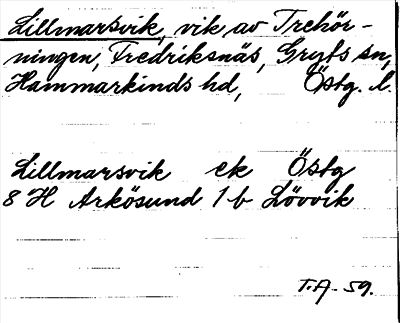 Lillmarsvik, vik av Trehör-
ningen, Fredriksnäs, Gryts sn,
Hammarkinds hd, Östg. l.
Lillmarsvik ek Östg
8 H Arkösund 1 b Lövvik
T.A. 59.